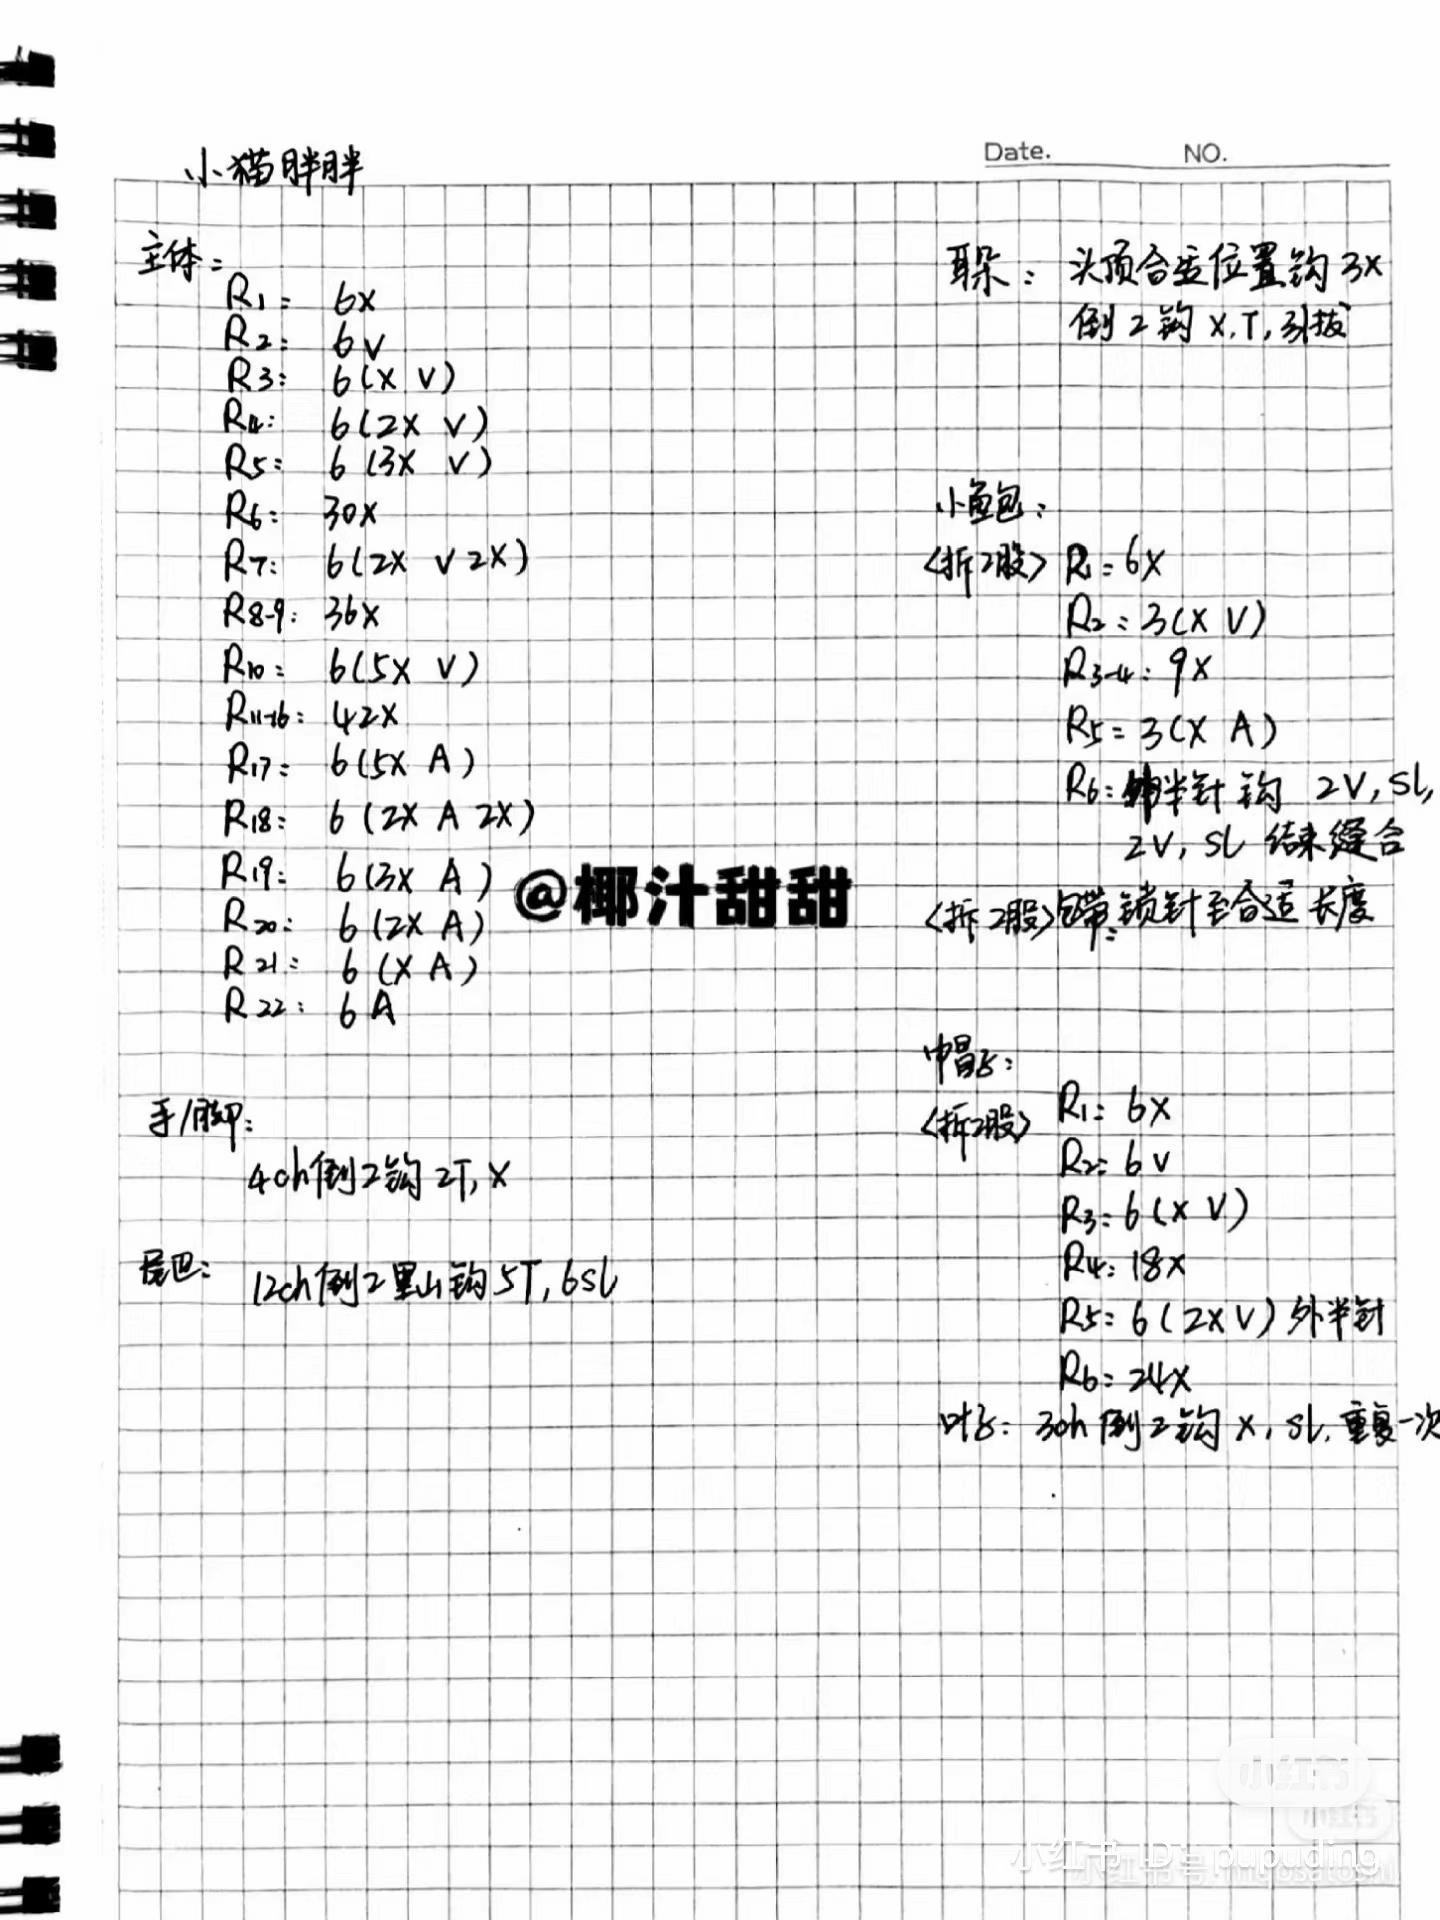 Date. NO.
小猫胖胖
主体:
R1: 6X
R2: 6V
R3: 6(X V)
R4: 6(2X V)
R5: 6(3X V)
R6: 30X
R7: 6(2X V 2X)
R8-9: 36X
R10: 6(5X V)
R11-16: 42X
R17: 6(5X A)
R18: 6(2X A 2X)
R19: 6(3X A)
R20: 6(2X A)
R21: 6(X A)
R22: 6A
@椰汁甜甜
手/脚:
4ch倒2钩 2T, X
尾巴: 12ch倒2里山钩5T, 6SL
耳朵: 头顶合适位置钩3X
倒2钩 X, T, 引拔
小鱼包:
<拆2股> R1: 6X
R2: 3(X V)
R3-4: 9X
R5: 3(X A)
R6: 外半针 钩 2V, SL,
2V, SL 结束缝合
<拆2股>包带:锁针至合适长度
帽子:
<拆2股> R1: 6X
R2: 6V
R3: 6(X V)
R4: 18X
R5: 6(2X V) 外半针
R6: 24X
叶子: 3ch倒2钩 X, SL, 重复一次
小红书
小红书
小红书 ID: pupuding